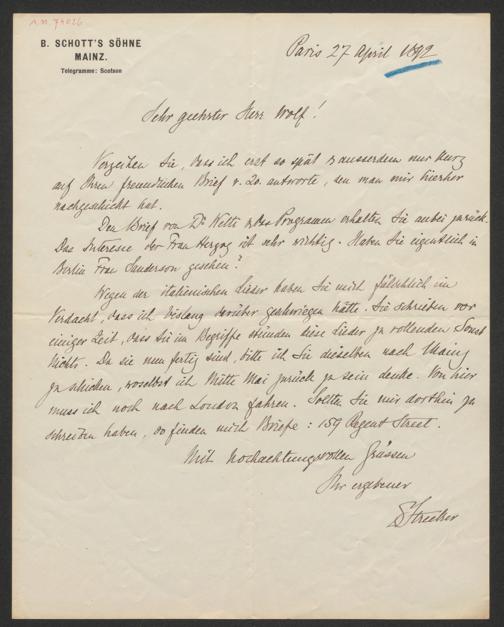 A.N. 74026
B. SCHOTT'S SÖHNE
MAINZ.
Telegramme: Scotson
Paris 27 April 1892
Sehr geehrter Herr Wolf!
Verzeihen Sie, dass ich erst so spät & ausserdem nur kurz
auf Ihren freundlichen Brief v. 20. antworte, den man mir hierher
nachgeschickt hat.
Den Brief von Dr. & das Programm erhalten Sie anbei zurück.
Das Interesse der Frau Herzog ist sehr wichtig. Haben Sie eigentlich in
Berlin Frau Sanderson gesehen?
Wegen der italienischen Lieder haben Sie mich fälschlich im
Verdacht, dass ich bislang darüber geschwiegen hätte. Sie schrieben vor
einiger Zeit, dass Sie im Begriffe stünden diese Lieder zu vollenden sonst
Nichts. Da sie nun fertig sind, bitte ich Sie dieselben nach Mainz
zu schicken, woselbst ich Mitte Mai zurück zu sein denke. Von hier
muss ich noch nach London fahren. Sollten Sie mir dorthin zu
schreiben haben, so finden mich Briefe: 159 Regent Street.
Mit hochachtungsvollen Grüssen
Ihr ergebener
Strecker